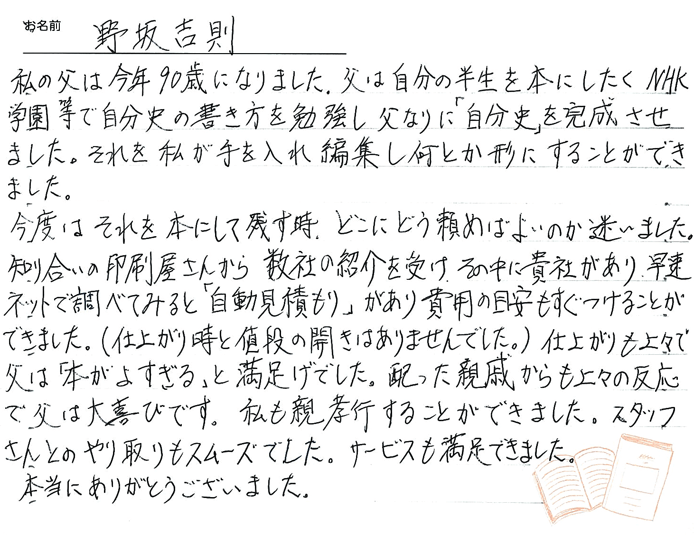 お名前 野坂吉則
私の父は今年90歳になりました。父は自分の半生を本にしたくNHK
学園等で自分史の書き方を勉強し父なりに「自分史」を完成させ
ました。それを私が手を入れ編集し何とか形にすることができ
ました。
今度はそれを本にして残す時、どこにどう頼めばよいのか迷いました。
知り合いの印刷屋さんから数社の紹介を受け、その中に貴社があり、早速
ネットで調べてみると「自動見積もり」があり費用の目安もすぐつけることが
できました。(仕上がり時と値段の開きはありませんでした。)仕上がりも上々で
父は「本がよすぎる」と満足げでした。配った親戚からも上々の反応
で父は大喜びです。私も親孝行することができました。スタッフ
さんとのやり取りもスムーズでした。サービスも満足できました。
本当にありがとうございました。